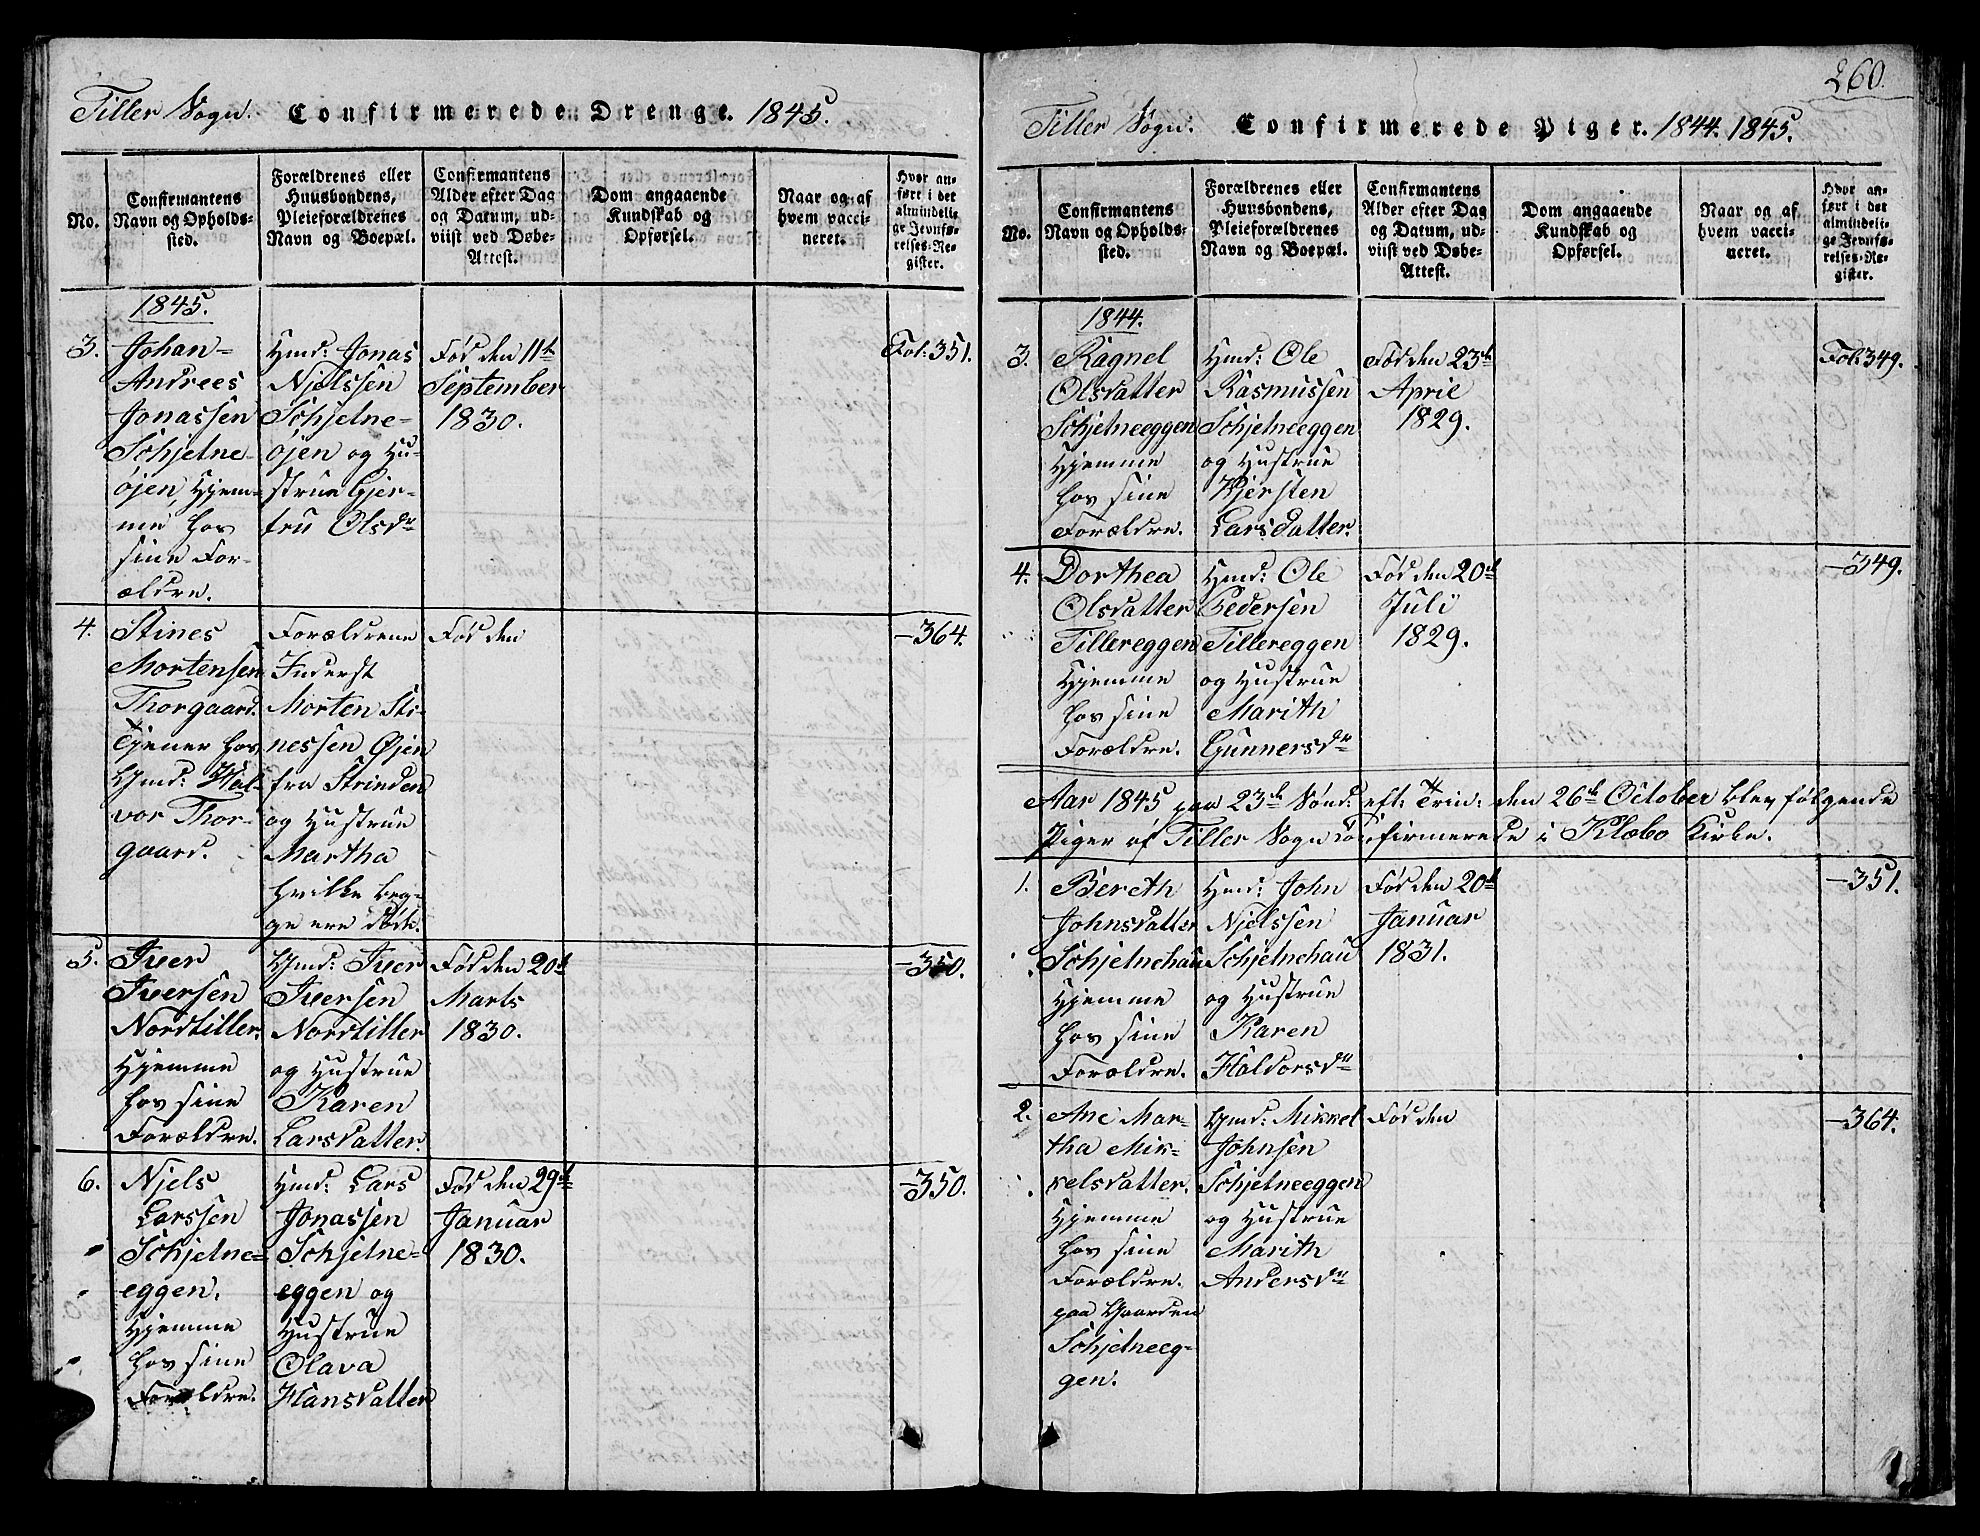 Tiller Sogn. Confirmerede Drenge. 1845.
No.
Confirmantens
Navn og Opholds-
sted.
Forældrenes eller
Huusbondens,
Pleieforældrenes
Navn og Boepæl.
Confirmantens
Alder efter Dag
og Datum, ud-
viist ved Døbe-
Attest.
Dom angaaende
Kundskab og
Opførsel.
Naar og af
hvem vacci-
neret.
Hvor an-
ført i det
almindeli-
ge Jevnfø-
relses-Re-
gister.
1845.
3.
Johan-
Andrees
Jonassen
Schjelne-
øjen, Hjem-
me hos
sine For-
ældre.
Hmd: Jonas
Njelssen
Schjelne-
øjen og Hu-
strue Gjer-
tru Olsdr
Fød den 11te
September
1830.
Fol: 351.
4.
Stines
Mortensen
Thorgaard.
Tjener hos
Gmd: Hal-
vor Thor-
gaard.
Forældrene
Inderst
Morten Sti-
nessen Øjen
fra Strinden
og Hustrue
Martha
hvilke beg-
ge ere døde.
Fød den
-364.
5.
Iver
Iversen
Nordtiller.
Hjemme
hos sine
Forældre.
Gmd: Iver
Iversen
Nordtiller
og Hustrue
Karen
Larsdatter.
Fød den 20d
Marts
1830.
-350.
6.
Njels
Larssen
Schjelne-
eggen.
Hjemme
hos sine
Forældre.
Hmd: Lars
Jonassen
Schjelne-
eggen og
Hustrue
Olava
Hansdatter
Fød den 29d
Januar
1830.
-350.
260.
Tiller Sogn. Confirmerede Piger. 1844. 1845.
No.
Confirmantens
Navn og Opholds-
sted.
Forældrenes eller
Huusbondens,
Pleieforældrenes
Navn og Boepæl.
Confirmantens
Alder efter Dag
og Datum, ud-
viist ved Døbe-
Attest.
Dom angaaende
Kundskab og
Opførsel.
Naar og af
hvem vacci-
neret.
Hvor an-
ført i det
almindeli-
ge Jevnfø-
relses-Re-
gister.
1844.
3.
Ragnel
Olsdatter
Schjelneeggen
Hjemme
hos sine
Forældre.
Hmd: Ole
Rasmussen
Schjelneeggen
og Hustrue
Kjersten
Larsdatter.
Fød den 23d
April
1829.
Fol: 349.
4.
Dorthea
Olsdatter
Tillereggen
Hjemme
hos sine
Forældre.
Hmd: Ole
Pedersen
Tillereggen
og Hustrue
Marith
Gunnersdr
Fød den 20d
Juli
1829.
-349.
Aar 1845 paa 23de Sønd: eft: Trin: den 26de October blev følgende
Piger af Tiller Sogn Confirmerede i Klæbo Kirke.
1.
Bereth
Johnsdatter
Schjelnehau
Hjemme
hos sine
Forældre.
Hmd: John
Njelssen
Schjelnehau
og Hustrue
Karen
Haldorsdr
Fød den 20d
Januar
1831.
-351.
2.
Ane Mar-
tha Mik-
kelsdatter.
Hjemme
hos sine
Forældre.
paa Gaarden
Schjelneeg-
gen.
Gmd: Mikkel
Johnsen
Schjelneeggen
og Hustrue
Marith
Andersdr
Fød den
-364.